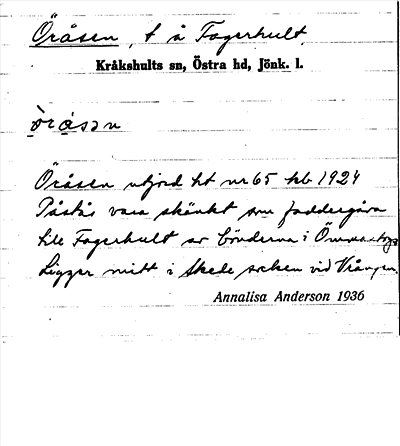 Öråsen, t. å Fagerhult,
Kråkshults sn, Östra hd, Jönk. l.
òrå̀sən
Öråsen utjord ht nr 65 kb 1924
Påstås vara skänkt som faddergåva
till Fagerhult av bönderna i
Ligger mitt i Skede socken vid
Annalisa Anderson 1936